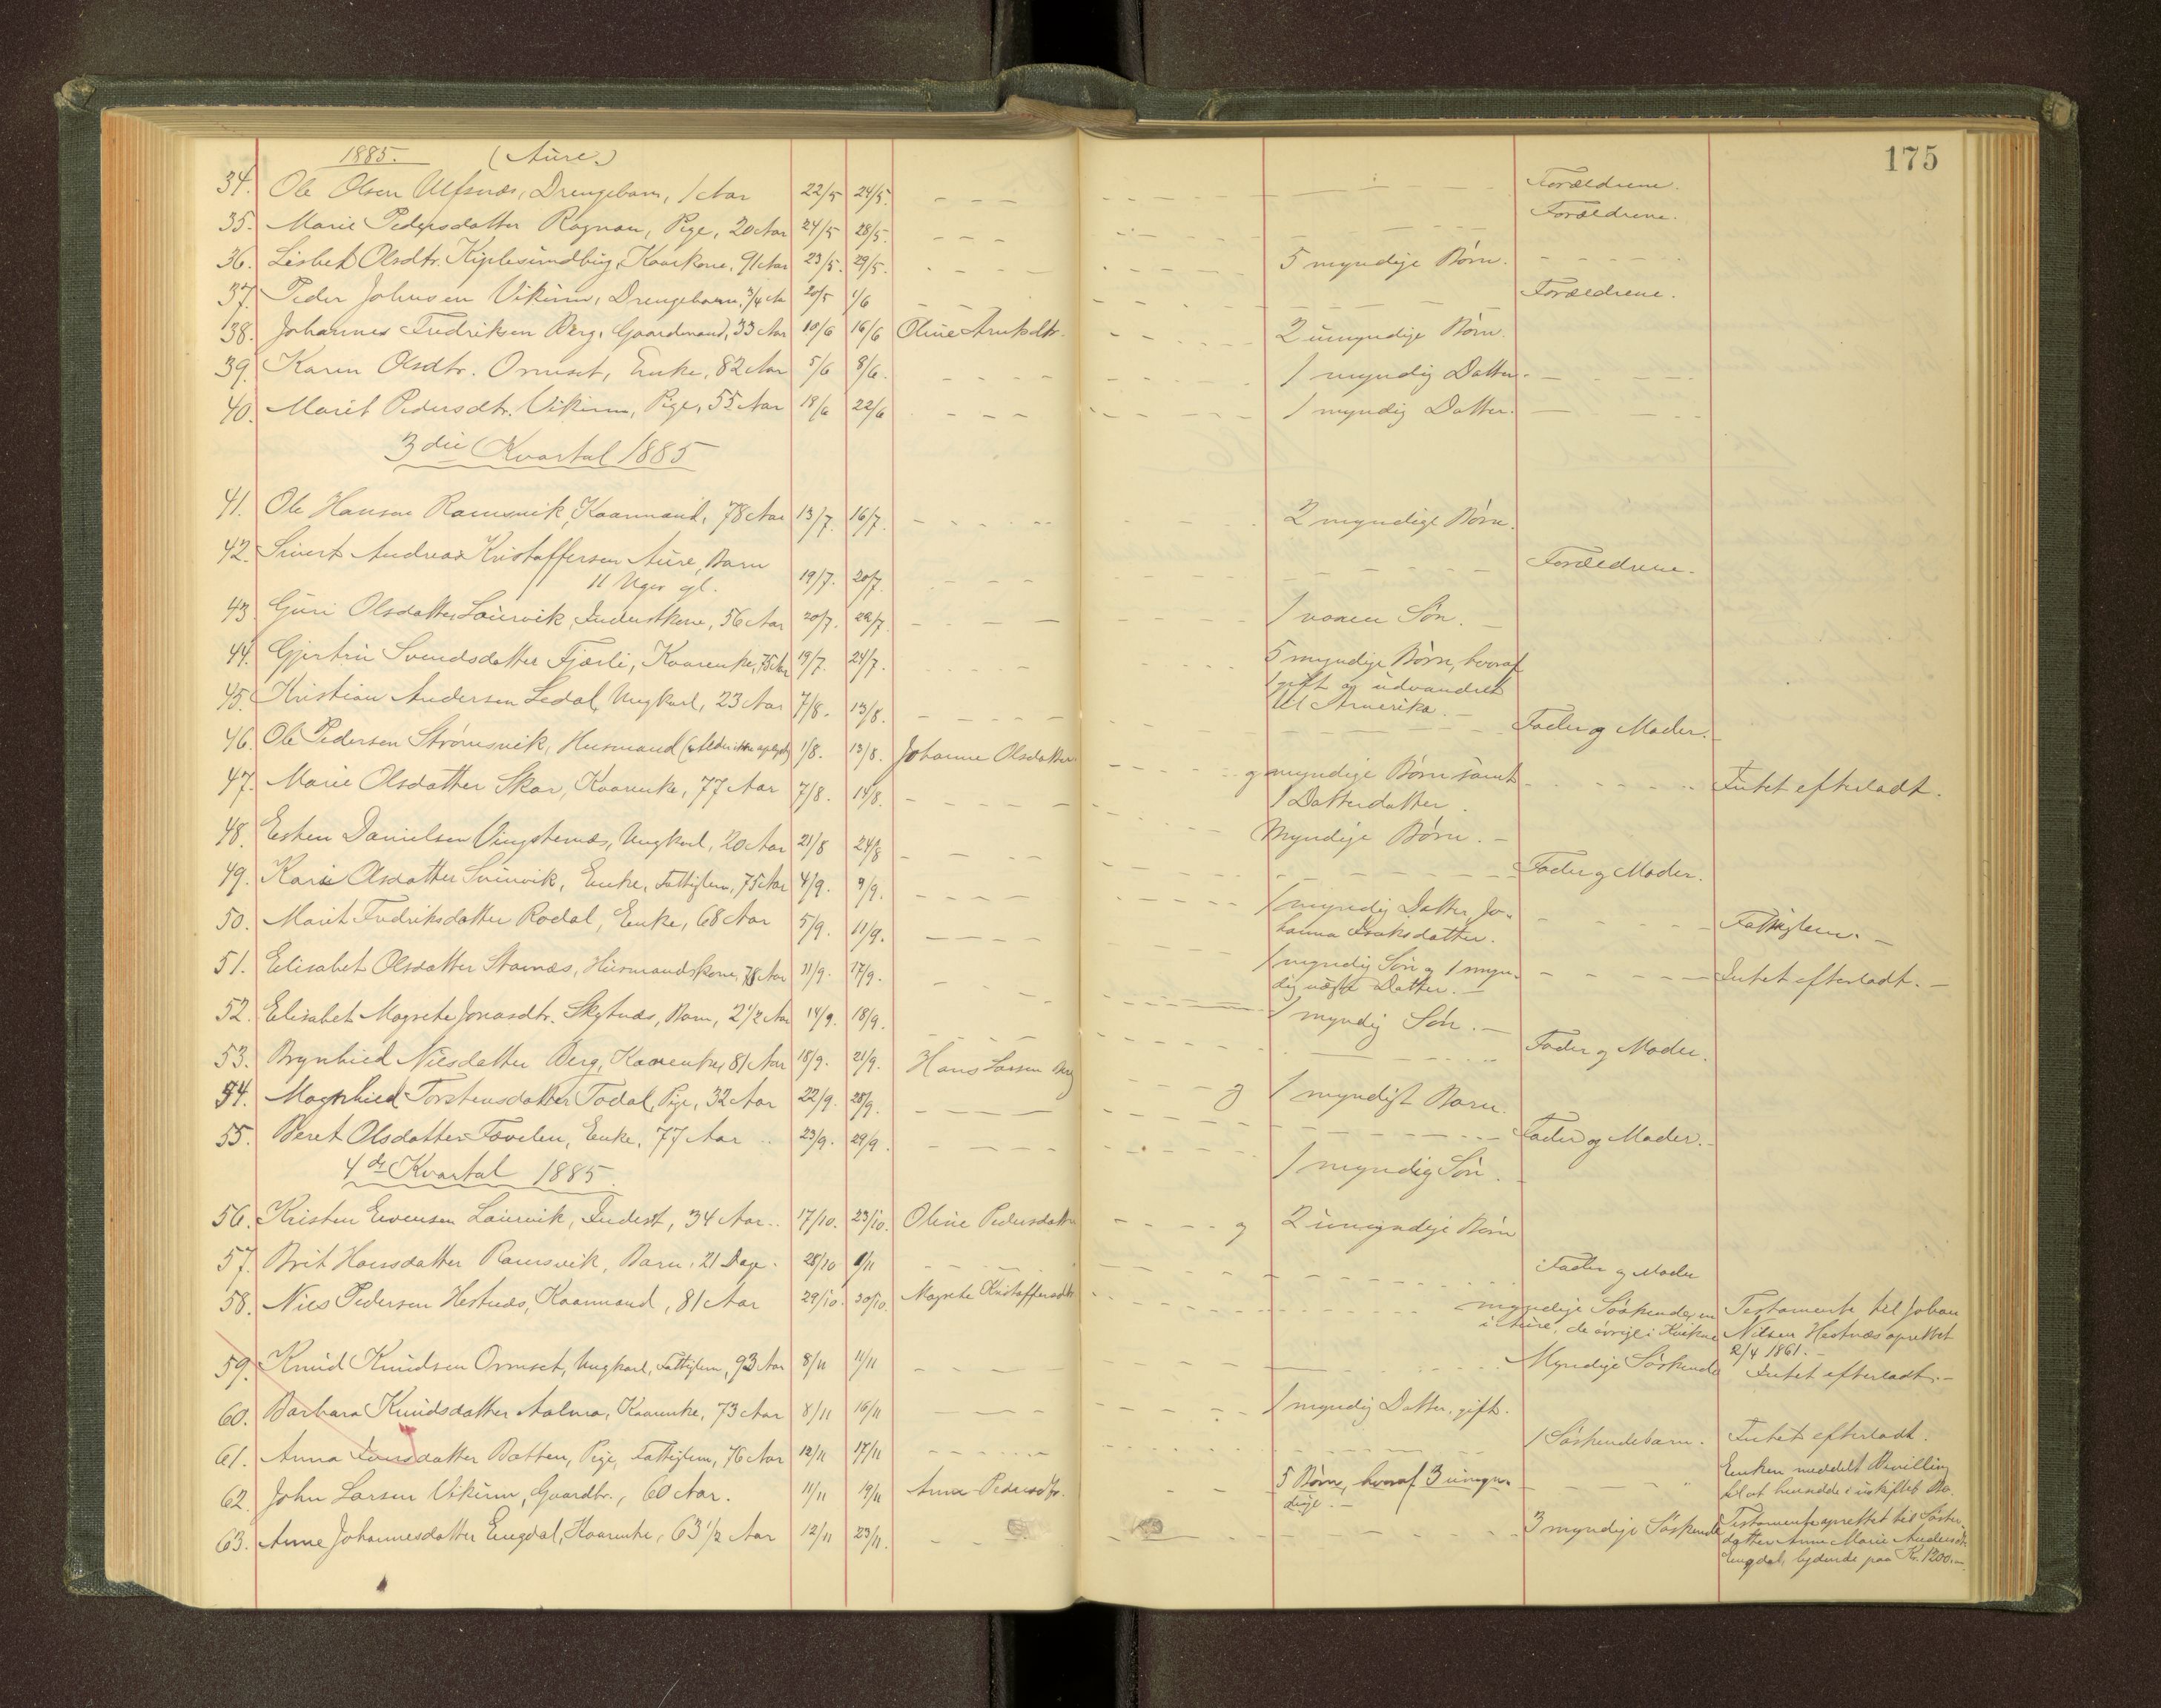 175
1885. (Aure.)
34. Ole Olsen Ulfsnæs, Drengebarn, 1 Aar 22/5 24/5. Forældrene.
35. Marie Pedersdatter Ragnau, Pige, 20 Aar 24/5 28/5. Forældrene.
36. Lisbet Olsdtr. Kaarkone, 91 Aar 23/5. 29/5. 5 myndige Børn.
37. Peder Johnsen Vikum, Drengebarn, 3/4 A 20/5 1/6 Forældrene.
38. Johannes Fredriksen Berg, Gaardmand, 33 Aar 10/6 16/6 Oline 2 umyndige Børn.
39. Karen Olsdtr. Ormset, Enke, 82 Aar 5/6 8/6. 1 myndig Datter.
40. Marit Pedersdtr. Vikum, Pige, 55 Aar 18/6 22/6 1 myndig Datter.
3die Kvartal 1885
41. Ole Hansen Ramsvik, Kaarmand, 78 Aar 13/7. 16/7. 2 myndige Børn.
42. Sivert Andreas Kristoffersen Aure, Barn
11 Uger gl. 19/7. 20/7. Forældrene.
43. Guri Olsdatter Laurvik, Inderstkone, 56 Aar 20/7. 22/7. 1 voxen Søn.
44. Gjertru Svendsdatter Fjærli, Kaarenke, 75 Aar 19/7. 24/7. 5 myndige Børn, hvoraf
1 gift og udvandret
til Amerika.
45. Kristian Andersen Ledal, Ungkarl, 23 Aar 7/8. 13/8. Fader og Moder.
46. Ole Pedersen Strømsvik, Husmand (Alder ikke opgivet) 1/8. 13/8. Johanne Olsdatter og myndige Børn samt
1 Datterdatter.
47. Marie Olsdatter Skar, Kaarenke, 77 Aar 7/8. 14/8. Myndige Børn. Intet efterladt.
48. Esten Danielsen Vingstenes, Ungkarl, 20 Aar 21/8 24/8 Fader og Moder.
49. Kari Olsdatter Svinvik, Enke, Fattiglem, 75 Aar 4/9. 9/9. 1 myndig Datter, Jo-
hanna Isaksdatter. Fattiglem.
50. Marit Fredriksdatter Rodal, Enke, 68 Aar 5/9. 11/9. 1 myndig Søn og 1 myn-
dig ugift Datter. Intet efterladt.
51. Elisabet Olsdatter Stamnæs, Husmandskone, 78 Aar 11/9. 17/9. 1 myndig Søn.
52. Elisabet Magrete Jonasdtr. Skytnæs, Barn, 2 1/2 Aar 14/9. 18/9. Fader og Moder.
53. Brynhied Nilsdatter Berg, Kaarenke, 81 Aar 18/9. 21/9. Hans Larsen Berg og 1 myndigt Barn.
54. Magnhied Torstensdatter Todal, Pige, 32 Aar 22/9. 28/9. Fader og Moder.
55. Beret Olsdatter Tovelen, Enke, 77 Aar 23/9. 29/9. 1 myndig Søn.
4de Kvartal 1885.
56. Kristen Evensen Laurvik, Inderst, 34 Aar 17/10. 23/10. Oline Pedersdatter og 2 umyndige Børn
57. Brit Hansdatter Ramsvik, Barn, 21 Dage. 28/10 1/11 Fader og Moder
58. Nils Pedersen Hestnæs, Kaarmand, 81 Aar 29/10. 30/10. Magrete Kristoffersdtr. myndige Søskende, en
i Aure, de øvrige i Testamente til Johan
Nilsen Hestnæs oprettet
2/4 1861.
59. Knud Knudsen Ormset, Ungkarl, Fattiglem, 93 Aar 8/11 11/11 Myndige Søskende Intet efterladt.
60. Barbara Knudsdatter Aalmo, Kaarenke, 73 Aar 8/11 16/11 1 myndig Datter, gift.
61. Anna datter Botten, Pige, Fattiglem, 76 Aar 12/11 17/11 1 Søskendebarn. Intet efterladt.
62. John Larsen Vikum, Gaardbr., 60 Aar. 11/11 19/11 Anne Pedersdtr. 5 Børn, hvoraf 3 umyn-
dige. Enken meddelt Bevilling
til at hensidde i uskiftet Bo.
63. Anne Johannesdatter Engdal, Kaarenke, 63 1/2 Aar 12/11 23/11. 3 myndige Søskende Testamente oprettet til Søster-
datter Anne Marie Andersdtr.
Engdal, lydende paa Kr. 1200.